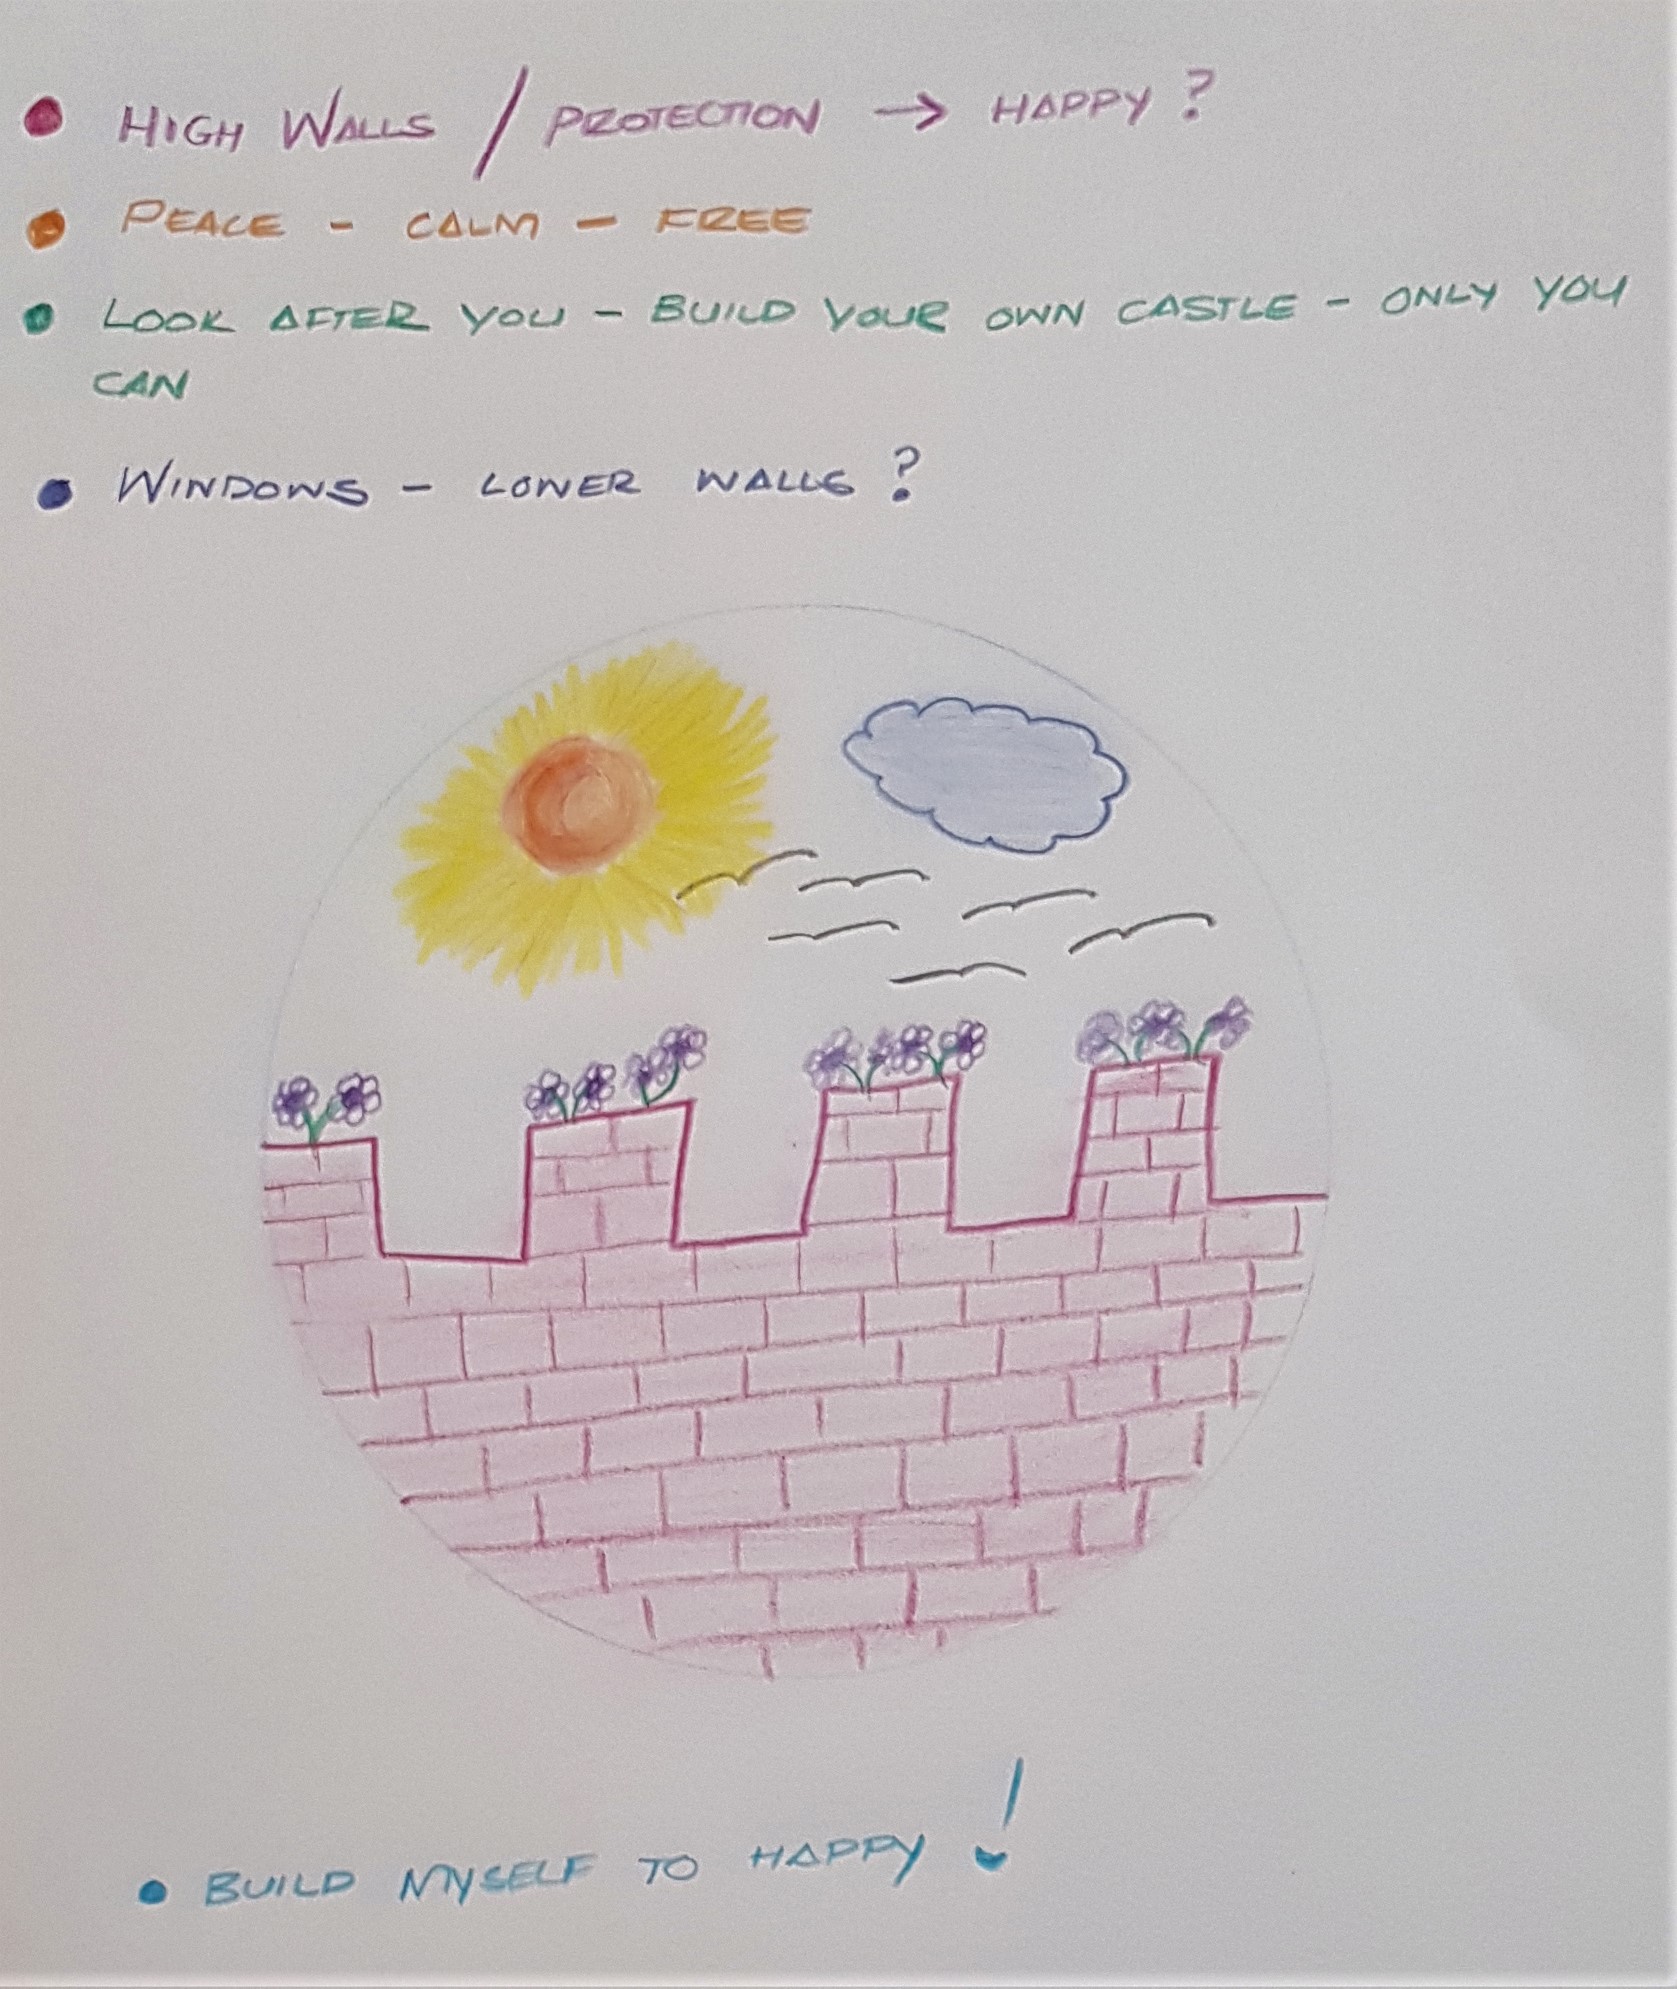 • HIGH WALLS / PROTECTION → HAPPY?
• PEACE - CALM - FREE
• LOOK AFTER YOU - BUILD YOUR OWN CASTLE - ONLY YOU
CAN
• WINDOWS - LOWER WALLS?
• BUILD MYSELF TO HAPPY!